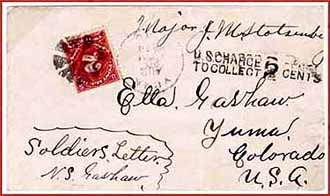 J. Major J. M. Stotsenbe
U.S. CHARGE
TO COLLECT 6 CENTS
Ella Gashaw
Yuma
Colorado
U.S.A.
Soldiers Letter.
N.S. Gashaw